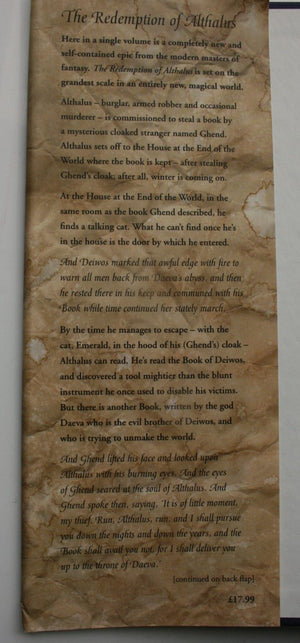 The Redemption of Althalus
Here in a single volume is a completely new and
self-contained epic from the modern masters of
fantasy. The Redemption of Althalus is set on the
grandest scale in an entirely new, magical world.
Althalus – burglar, armed robber and occasional
murderer – is commissioned to steal a book by
a mysterious cloaked stranger named Ghend.
Althalus sets off to the House at the End of the
World where the book is kept – after stealing
Ghend's cloak; after all, winter is coming on.
At the House at the End of the World, in the
same room as the book Ghend described, he
finds a talking cat. What he can't find once he's
in the house is the door by which he entered.
And Deiwos marked that awful edge with fire to
warn all men back from Daeva's abyss, and then
he rested there in his keep and communed with his
Book while time continued her stately march.
By the time he manages to escape – with the
cat, Emerald, in the hood of his (Ghend's) cloak –
Althalus can read. He's read the Book of Deiwos,
and discovered a tool mightier than the blunt
instrument he once used to disable his victims.
But there is another Book, written by the god
Daeva who is the evil brother of Deiwos, and
who is trying to unmake the world.
And Ghend lifted his face and looked upon
Althalus with his burning eyes. And the eyes
of Ghend seared at the soul of Althalus. And
Ghend spoke then, saying, 'It is of little moment,
my thief. Run, Althalus, run, and I shall pursue
you down the nights and down the years, and the
Book shall avail you not, for I shall deliver you
up to the throne of Daeva.'
[continued on back flap]
£17.99